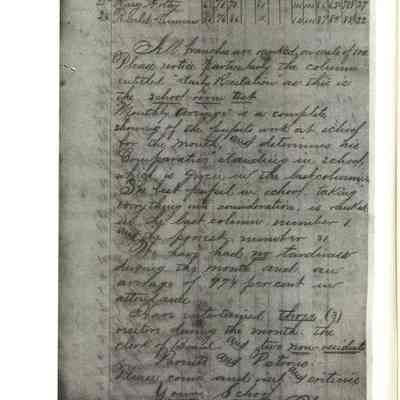 All branches are marked, on scale of 100
Please notice particularly the column
entitled "Daily Recitation" as this is
the school room test
Monthly Average is a complete
showing of the pupils work at school
for the month, and determines his
Comparative standing in school,
which is given in the last column.
The best pupil in school, taking
everything into consideration, is ranked
in the last column, number 1
and the poorest, number 31
We have had no tardiness
during the month and an
average of 97 per cent in
attendance
I have entertained three (3)
visitors during the month. The
clerk of board and two non residents
Parents and Patrons:
Please come and visit and criticise
Your School